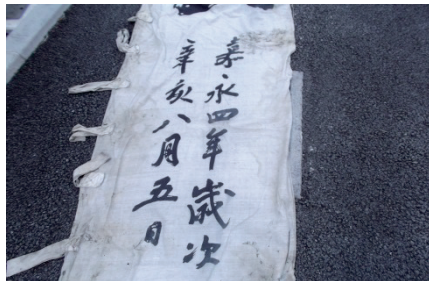 嘉永四年歳次
辛亥八月五日